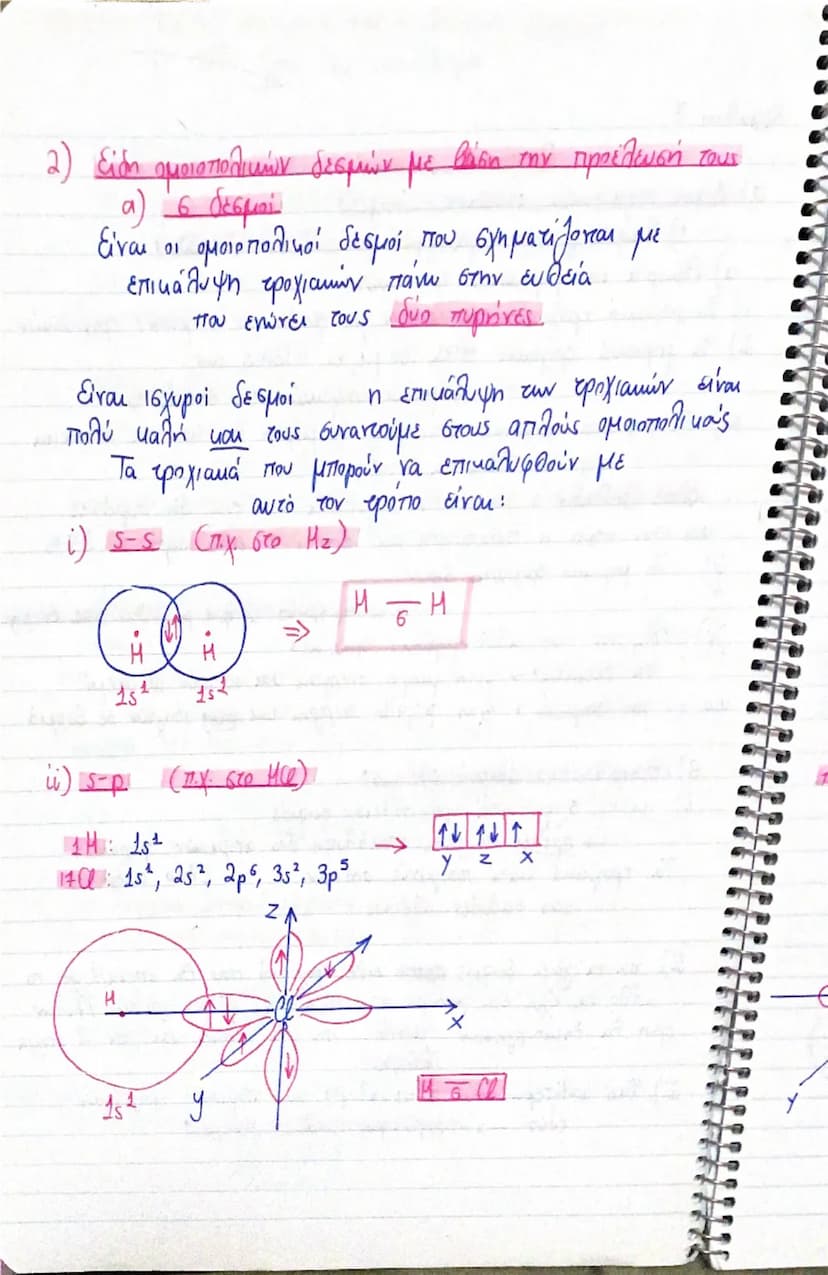 2) Είδη ομοιοπολικών δεσμών με βάση την προέλευσή τους
α) σ δεσμοί
Είναι οι ομοιοπολικοί δεσμοί που σχηματίζονται με
επικάλυψη τροχιακών πάνω στην ευθεία
που ενώνει τους δύο πυρήνες.
Είναι ισχυροί δεσμοί η επικάλυψη των τροχιακών είναι
πολύ καλή και τους συναντούμε στους απλούς ομοιοπολικούς
Τα τροχιακά που μπορούν να επικαλυφθούν με
αυτό τον τρόπο είναι:
i) s-s (π.χ. στο H2)
H H ⇒ H — H
σ
1s¹ 1s¹
ii) s-p (π.χ. στο HCl)
1H: 1s¹ → ↑↓ ↑↓ ↑
y z x
17Cl: 1s², 2s², 2p⁶, 3s², 3p⁵
z
H Cl
x
y
1s¹
H —σ Cl
y